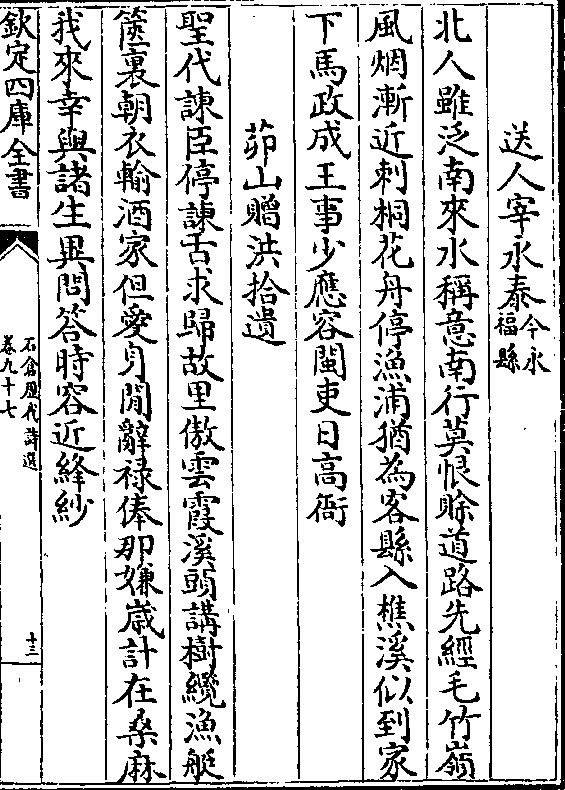 送人宰永泰今永福縣
北人雖泛南來水稱意南行莫恨賒道路先經毛竹嶺
風烟漸近刺桐花舟停漁浦猶為客縣入樵溪似到家
下馬政成王事少應容閩吏日高衙
茆山贈洪拾遺
聖代諫臣停諫舌求歸故里傲雲霞溪頭講樹纜漁艇
篋裏朝衣輸酒家但愛身閒辭祿俸那嫌歲計在桑麻
我來幸與諸生異問答時容近絳紗
欽定四庫全書
石倉歷代詩選
卷九十七
十三